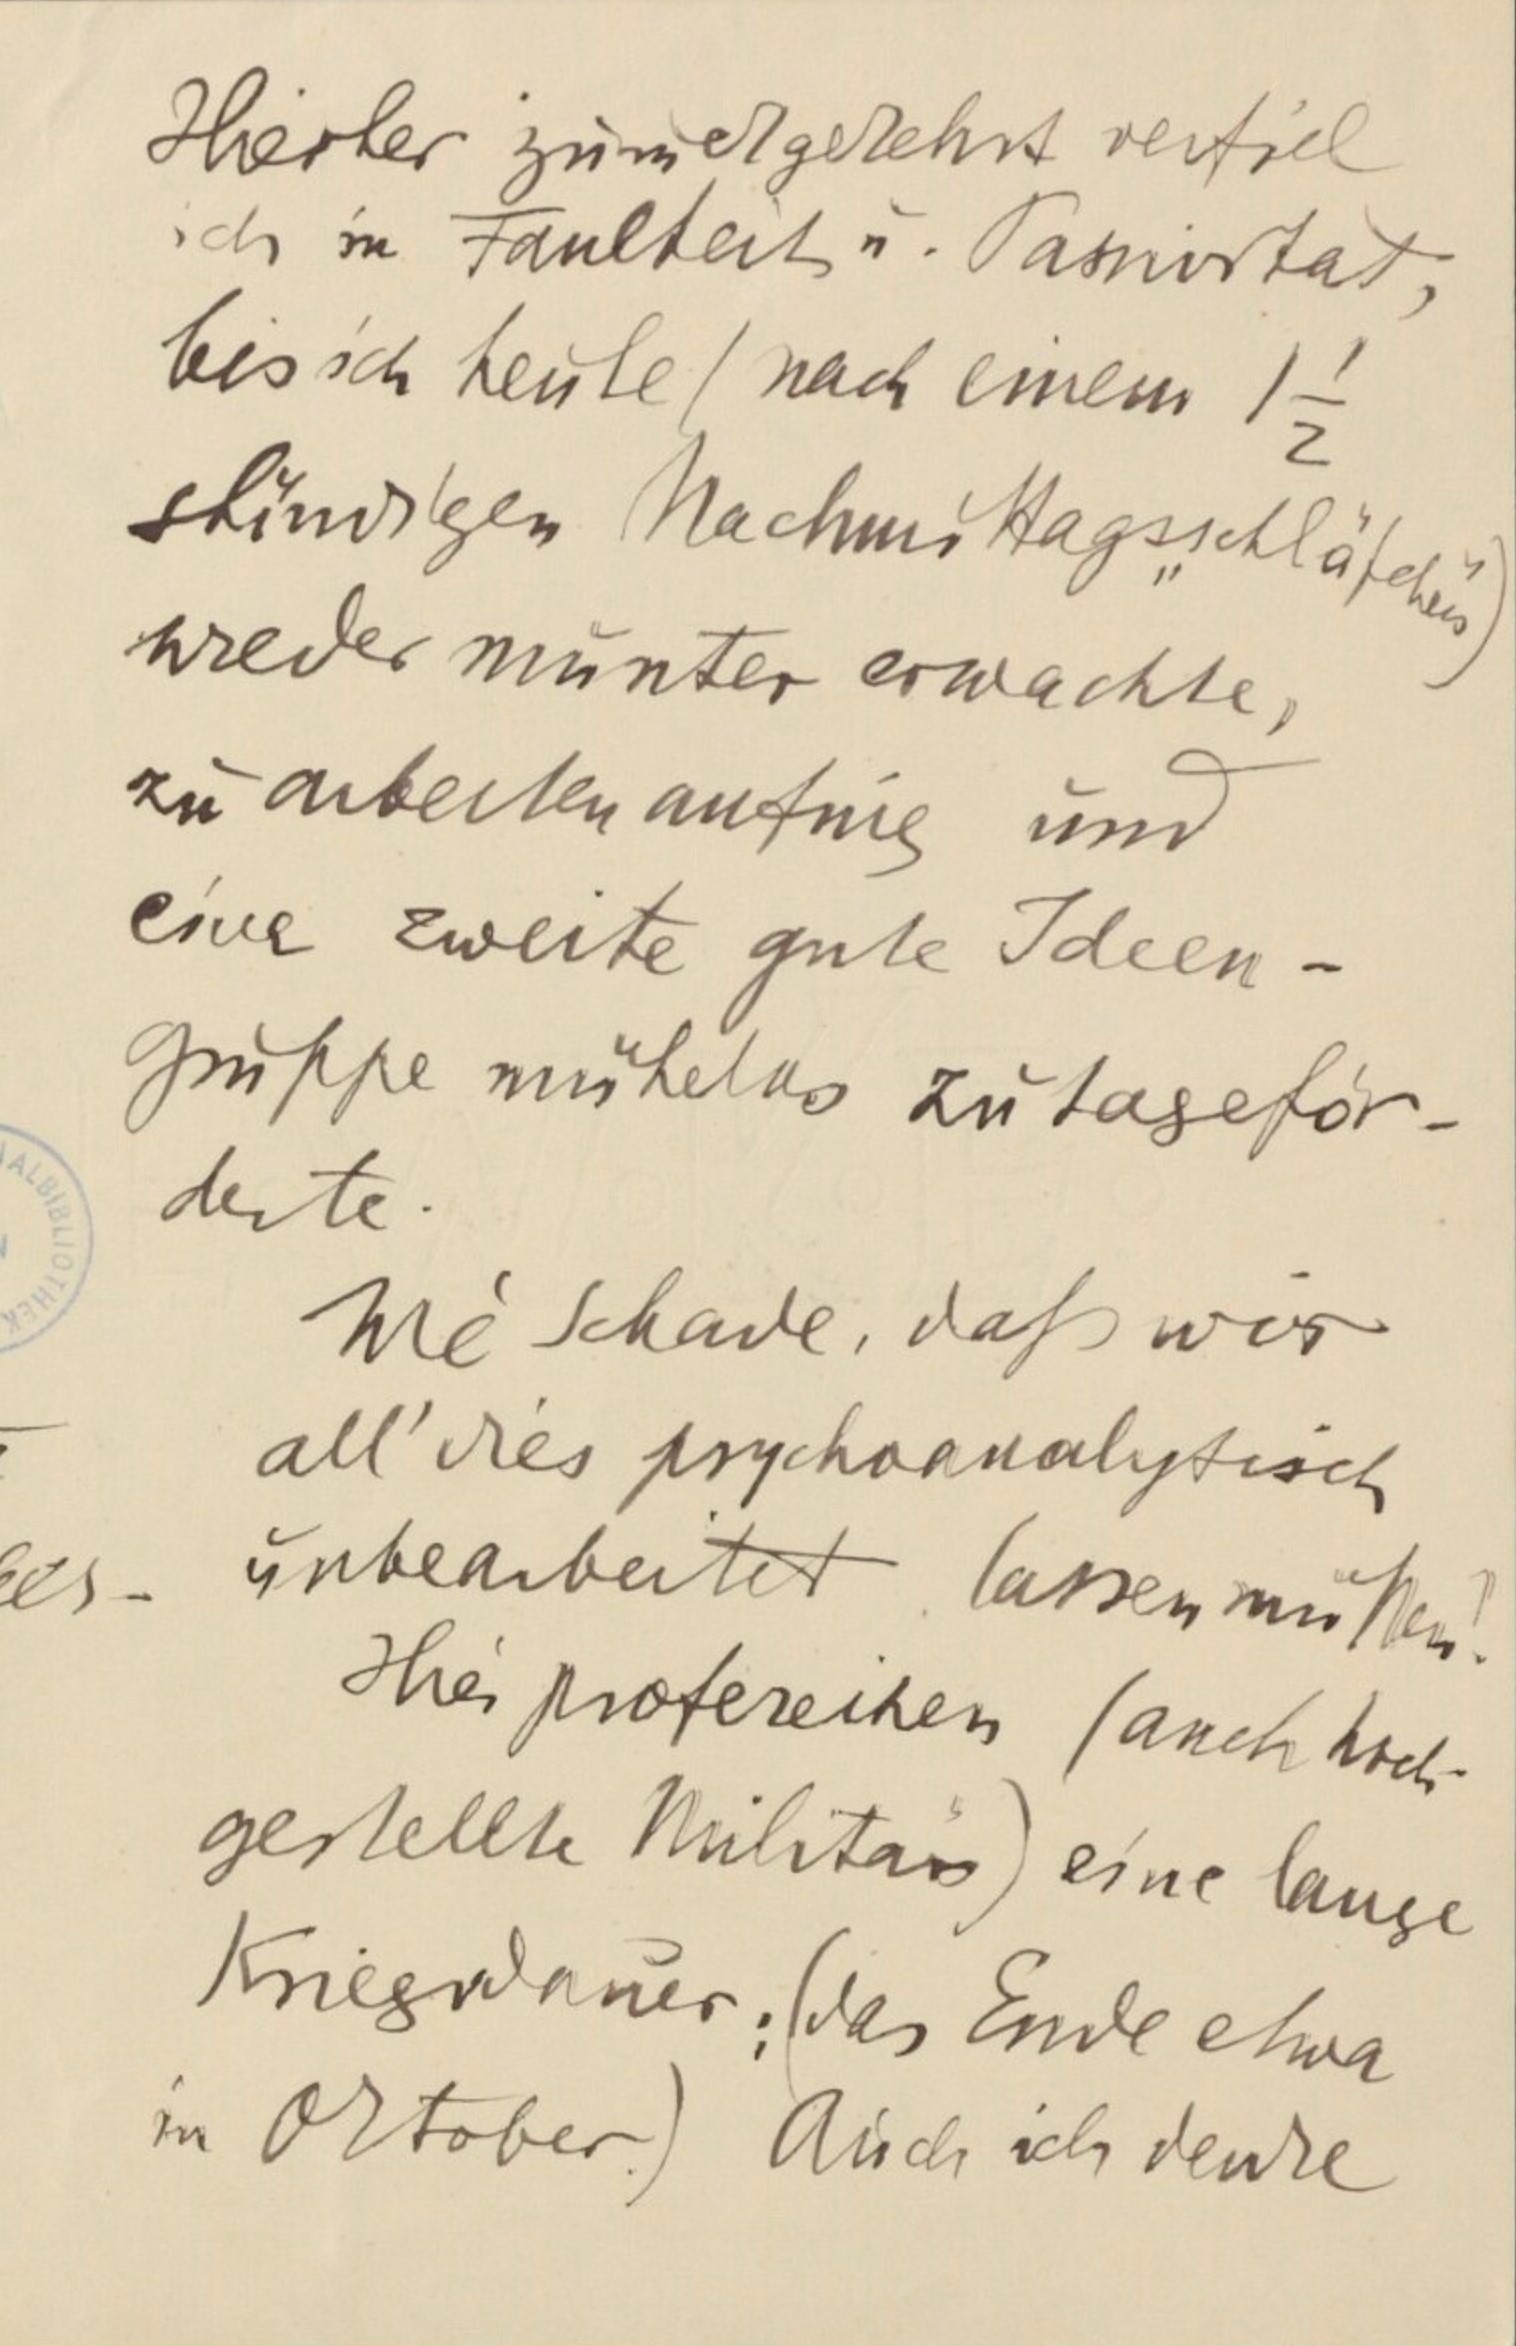 Hierher zurückgekehrt verfiel
ich in Faulheit u. Passivität,
bis ich heute (nach einem 1 1/2
stündigen Nachmittags„schläfchen")
wieder munter erwachte,
zu arbeiten anfing und
eine zweite gute Ideen-
gruppe mühelos zutageför-
derte.
Wie schade, daß wir
all' dies psychoanalytisch
unbearbeitet lassen müssen!
Hier profezeihen (auch hoch-
gestellte Militärs) eine lange
Kriegsdauer; (das Ende etwa
in Oktober.) Auch ich denke
ALBIBLIOTHEK